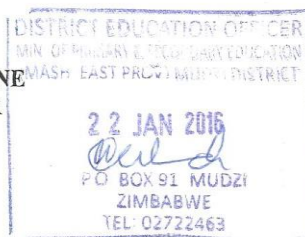 DISTRICT EDUCATION OFFICER
MIN. OF PRIMARY & SECONDARY EDUCATION
NE
MASH EAST PROV MUDZI DISTRICT
22 JAN 2016
P O BOX 91 MUDZI
ZIMBABWE
TEL: 02722463